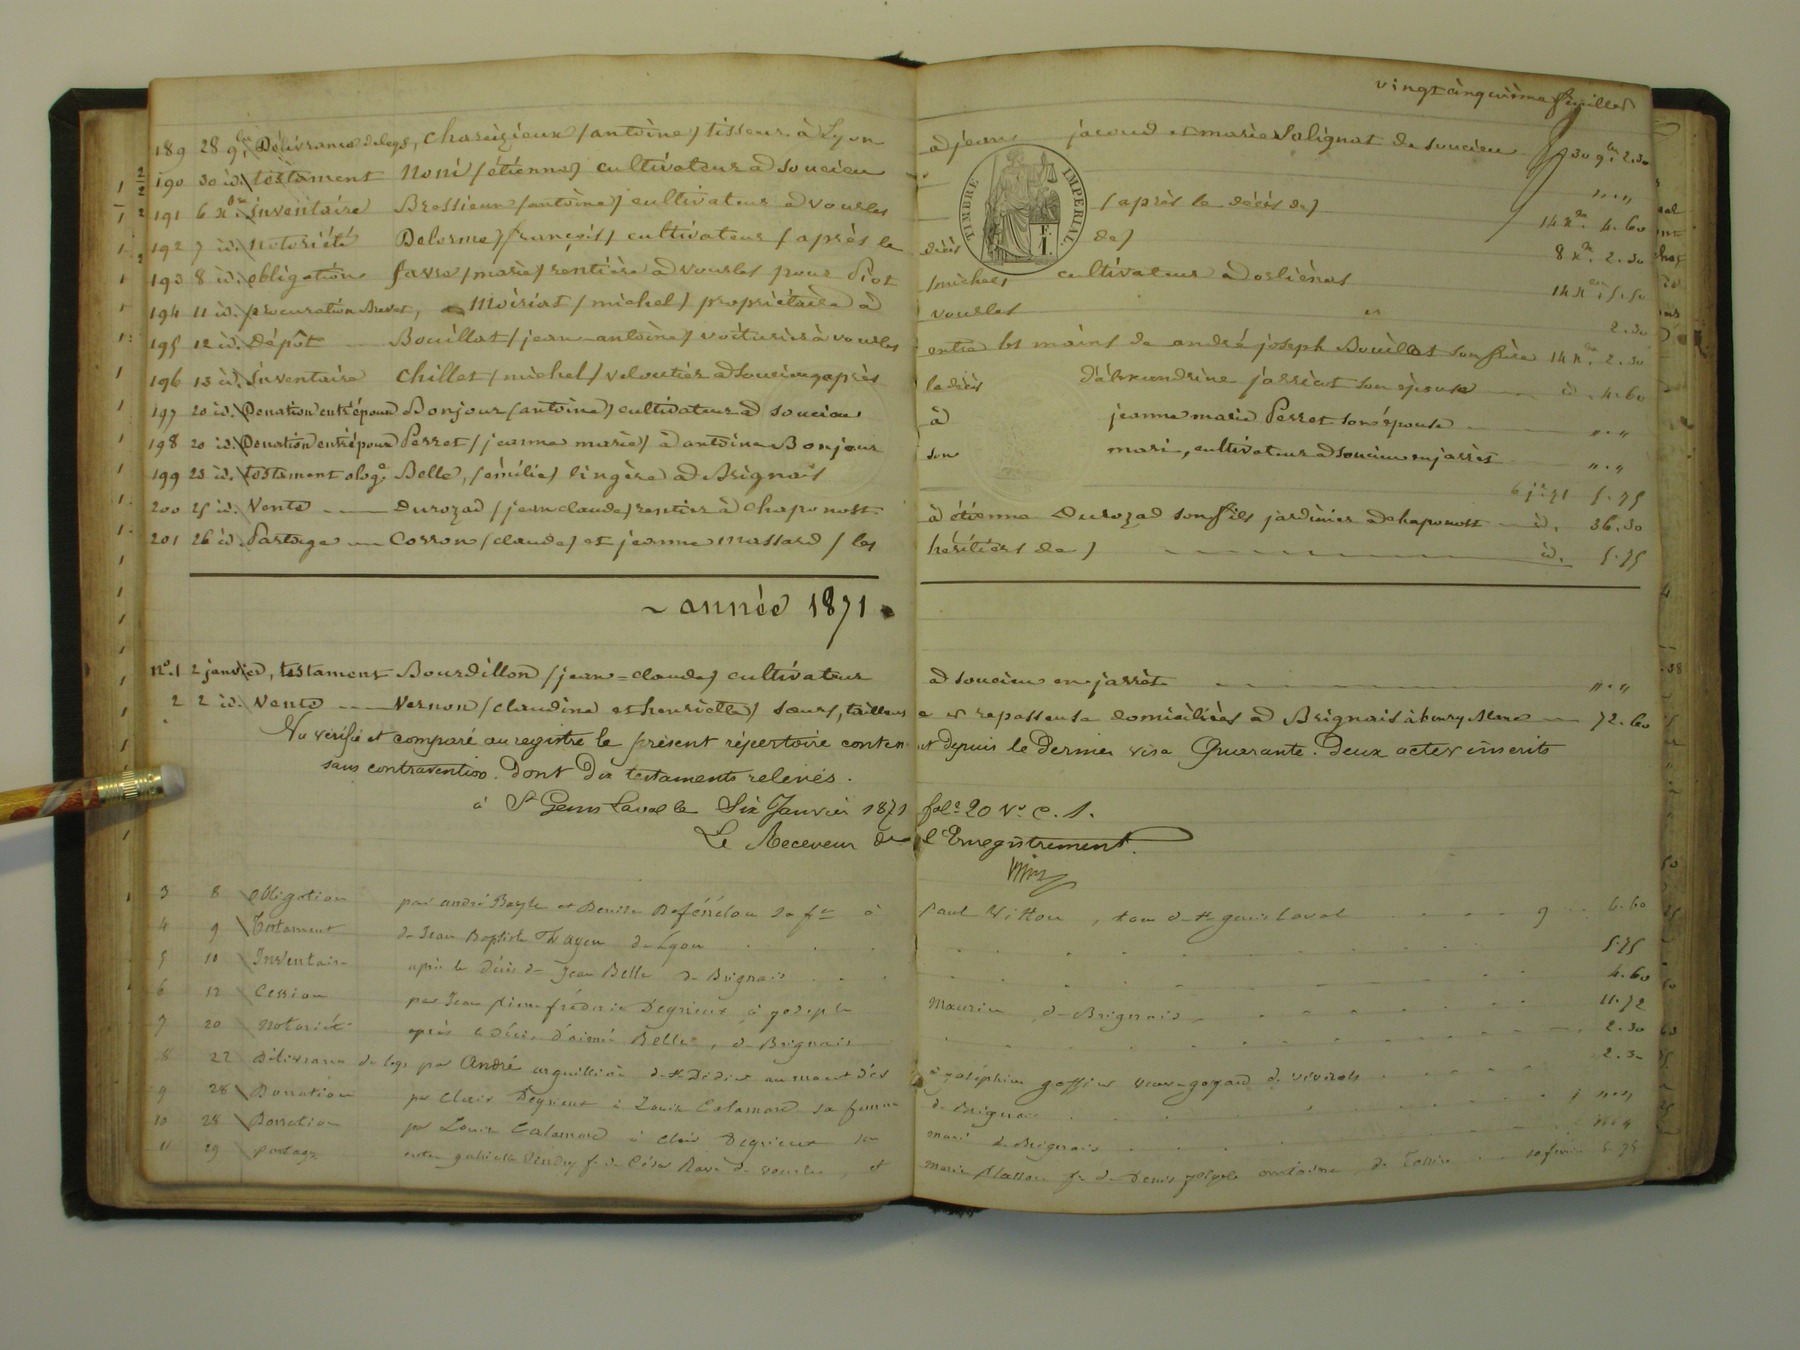 vingt cinquième feuillet
189 28 9bre Délivrance de legs, Chareizieux (antoine) tisseur à Lyon à jean jacoud et marie Salignat de soucieu 30 9bre 2.30
190 30 id. testament Noni (étienne) cultivateur à soucieu " . "
191 6 Xbre inventaire Bressieux (antoine) cultivateur à vourles (après le décès de) 14 Xbre 4.60
192 7 id. notoriété Delorme (françois) cultivateur (après le décès de) 8 Xbre 2.30
193 8 id. obligation favre (marie) rentière à vourles pour Piot (michel) cultivateur à orliénas 14 Xbre 5.50
194 11 id. procuration Brevet, à Moiriat (michel) propriétaire à vourles 2.30
195 12 id. Dépôt Bouillat (jean-antoine) voiturier à vourles entre les mains de andré joseph Bouillat son frère 14 Xbre 2.30
196 13 id. inventaire Chillet (michel) veloutier à soucieu après le décès d'alexandrine jarricot son épouse id. 4.60
197 20 id. Donation entre époux Bonjour (antoine) cultivateur à soucieu à jeanne marie Perret son épouse " . "
198 20 id. Donation entre époux Perret (jeanne marie) à antoine Bonjour son mari, cultivateur à soucieu en jarrèt " . "
199 23 id. testament olog. Belle, (émilie) lingère à Brignais 6 jr 71 5.75
200 25 id. Vente Durozad (jean claude) rentier à chaponost à étienne Durozad son fils jardinier à chaponost id. 36.30
201 26 id. Partage Corron (claude) et jeanne Massard (les héritiers de) id. 5.75
TIMBRE IMPERIAL
F. 1.
année 1871.
no. 1 2 janvier, testament Bourdillon (jean-claude) cultivateur à soucieu en jarrèt " . "
2 2 id. Vente Vernon (claudine et henriette) sœurs, tailleuse et repasseuse domiciliées à Brignais à henry 72.60
Vu vérifié et comparé au registre le présent répertoire contenant depuis le dernier visa Quarante-deux actes inscrits
sans contravention. Dont dix testaments relevés.
à St Genis Laval le Six Janvier 1871 folo 20 Vo C. 1.
Le Receveur de l'Enregistrement.
3 8 Obligation par andré Bayle et Denise sa fe à Paul Vitton, de st genis Laval 9 6.60
4 9 Testament de Jean Baptiste de Lyon 5.75
5 10 Inventaire après le décès de Jean Belle de Brignais 4.60
6 12 Cession par Jean pierre frédéric Degrieux à joseph Maurin de Brignais 11.72
7 20 Notoriété après le décès d'aimé Belle, de Brignais 2.30
8 22 Délivrance de legs par André de st Didier au mont d'or à joséphine veuve 2.30
9 28 Donation par Clair Degrieux à Louise Calamard sa femme de Brignais
10 28 Donation par Louise Calamard à Clair Degrieux son mari de Brignais
11 29 partage entre gabrielle fe de César de vourles, et marie Plasson fe de Denis 5.75